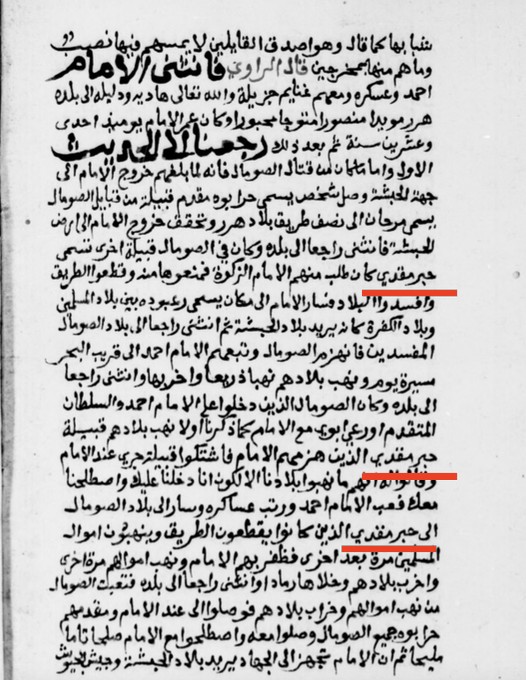 يتنبا بها كما قال وهو اصدق القايلين لا يمسهم فيها نصب
وما هم منها بمخرجين قال الراوي فانثنى الامام
احمد وعسكره ومعهم غنايم جزيلة والله تعالى هاديه ودليله الى بلده
هرر مويدا منصورا متوجا محبورا وكان عمر الامام يوميذ احدى
وعشرين سنة ثم بعد ذلك رجعنا الى الحديث
الاول واما ما كان من قتال الصومال فانه لما بلغهم خروج الامام الى
جهة الحبشة وصل شخص يسمى حرابوه مقدم قبيلة من قبايل الصومال
يسمى مرحان الى نصف طريق بلاد هرر وتحقق خروج الامام الى ارض
الحبشة فانثنى راجعا الى بلده وكان في الصومال قبيلة اخرى تسمى
حبر مقدي كان طلب منهم الامام الزكوة فمنعوها منه وقطعوا الطريق
وافسدوا البلاد فسار الامام الى مكان يسمى رعبوده بين بلاد المسلمين
وبلاد الكفرة كانه يريد بلاد الحبشة ثم انثنى راجعا الى بلاد الصومال
المفسدين فانهزم الصومال وتبعهم الامام احمد الى قريب البحر
مسيرة يوم ونهب بلادهم نهبا ذريعا واخربها وانثنى راجعا
الى بلده وكان الصومال الذين دخلوا على الامام احمد والسلطان
المتقدم اورعي ابوي مع الامام كما ذكرنا اولا نهب بلادهم قبيلة
حبر مقدي الذين هزمهم الامام فاشتكوا قبيلة حربي عند الامام
وقالوا له انهم ما نهبوا بلادنا الا لكون انا دخلنا عليك واصطلحنا
معك فعب الامام احمد ورتب عساكره وسار الى بلاد الصومال
الى حبر مقدي الذين كانوا يقطعون الطريق وينهبون اموال
المسلمين مرة بعد اخرى فظفر بهم الامام ونهب اموالهم مرة اخرى
واخرب بلادهم وخلاها رمادا وانثنى راجعا الى بلده فتعبت الصومال
من نهب اموالهم وخراب بلادهم فوصلوا الى عند الامام ومقدمهم
حرابوه جميع الصومال وصلوا معه واصطلحوا مع الامام صلحا تاما
مليحا ثم ان الامام تجهز الى الجهاد يريد بلاد الحبشة وجيش الجيوش